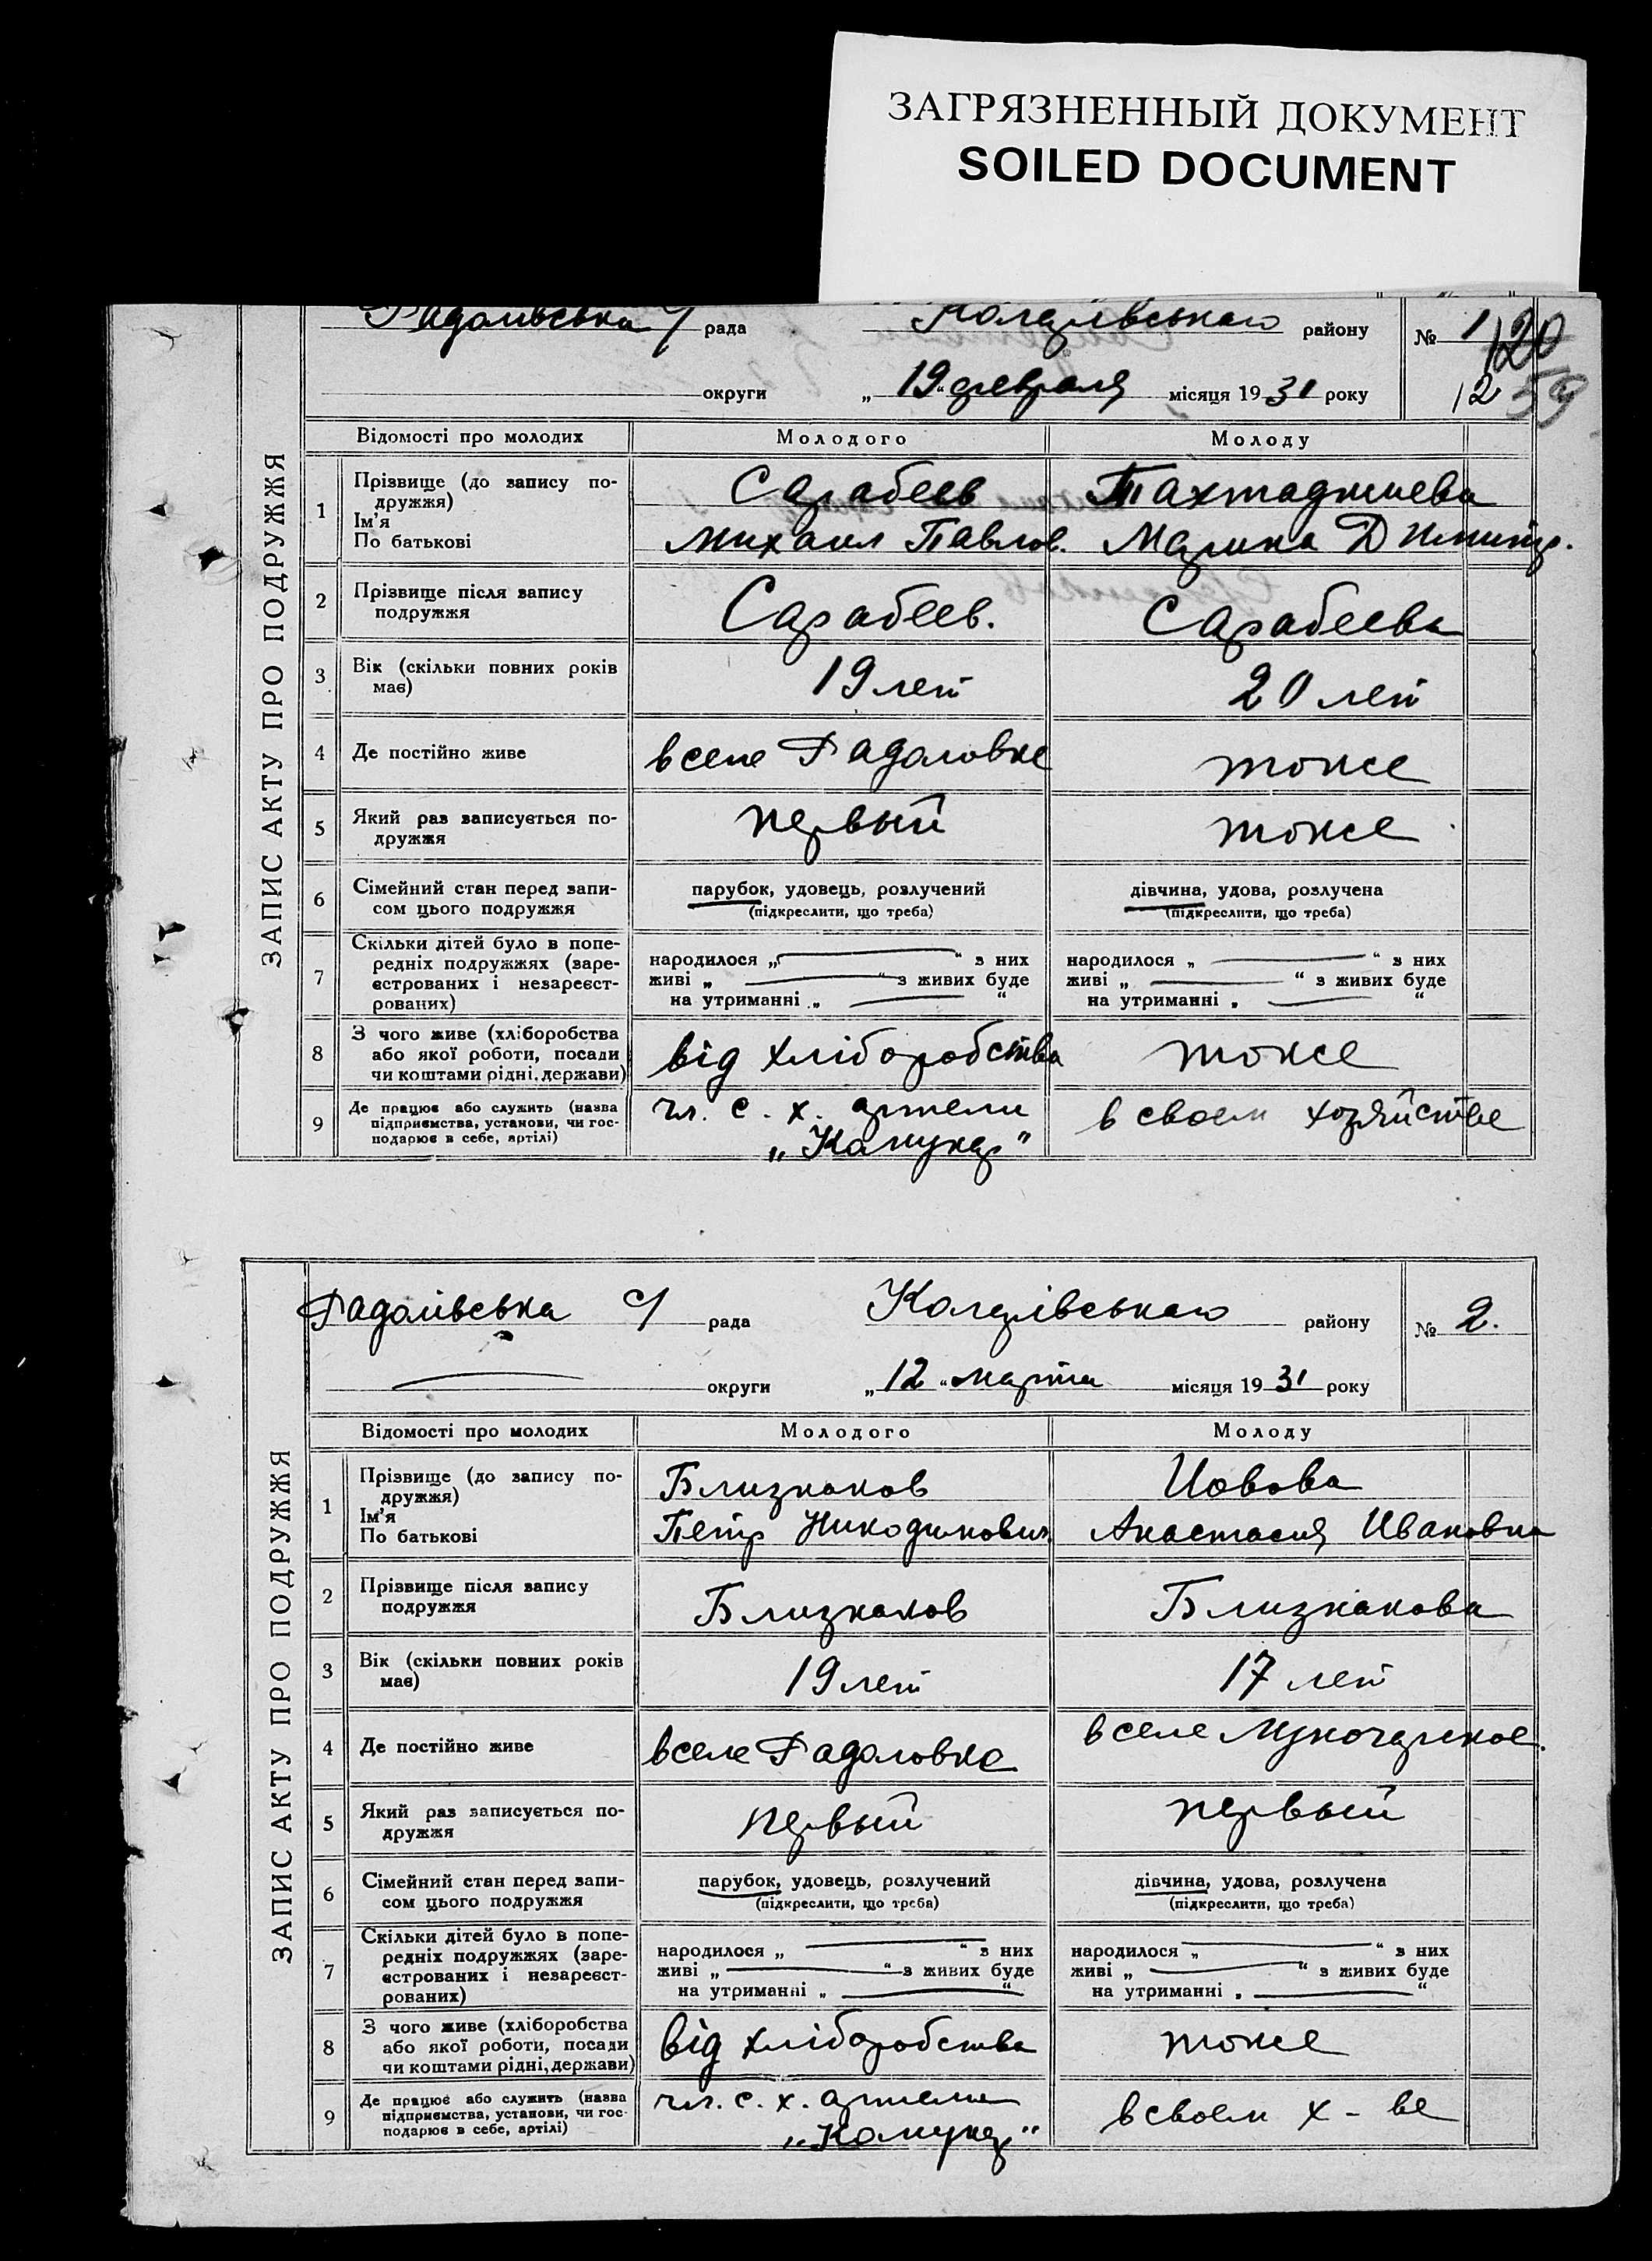 ЗАГРЯЗНЕННЫЙ ДОКУМЕНТ
SOILED DOCUMENT
Радолівська с/ рада Коларівського району № 1 120
округи „ 19 " февраля місяця 19 31 року 12 59
ЗАПИС АКТУ ПРО ПОДРУЖЖЯ
Відомості про молодих Молодого Молоду
1 Прізвище (до запису по-
дружжя) Сарабеев Тахтаджиева
Ім'я
По батькові Михаил Павлов. Марина Дмитр.
2 Прізвище після запису
подружжя Сарабеев. Сарабеева
3 Вік (скільки повних років
має) 19 лет 20 лет
4 Де постійно живе в селе Радоловке тоже
5 Який раз записується по-
дружжя первый тоже
6 Сімейний стан перед запи- парубок, удовець, розлучений дівчина, удова, розлучена
сом цього подружжя (підкреслити, що треба) (підкреслити, що треба)
7 Скільки дітей було в попе-
редніх подружжях (заре- народилося „ “ з них народилося „ “ з них
єстрованих і незареєст- живі „ “ з живих буде живі „ “ з живих буде
рованих) на утриманні „ “ на утриманні „ “
8 З чого живе (хліборобства
або якої роботи, посади від хліборобства тоже
чи коштами рідні, держави)
9 Де працює або служить (назва чл. с. х. артели в своем хозяйстве
підприємства, установи, чи гос-
подарює в себе, артілі)
Радолівська с/ рада Коларівського району № 2.
округи „ 12 “ марта місяця 19 31 року
ЗАПИС АКТУ ПРО ПОДРУЖЖЯ
Відомості про молодих Молодого Молоду
1 Прізвище (до запису по- Близнаков Иовова
дружжя)
Ім'я
По батькові Петр Никодимович Анастасия Ивановна
2 Прізвище після запису
подружжя Близнаков Близнакова
3 Вік (скільки повних років
має) 19 лет 17 лет
4 Де постійно живе в селе Радоловке в селе
5 Який раз записується по-
дружжя первый первый
6 Сімейний стан перед запи- парубок, удовець, розлучений дівчина, удова, розлучена
сом цього подружжя (підкреслити, що треба) (підкреслити, що треба)
7 Скільки дітей було в попе-
редніх подружжях (заре- народилося „ “ з них народилося „ “ з них
єстрованих і незареєст- живі „ “ з живих буде живі „ “ з живих буде
рованих) на утриманні „ “ на утриманні „ “
8 З чого живе (хліборобства
або якої роботи, посади від хліборобства тоже
чи коштами рідні, держави)
9 Де працює або служить (назва чл. с. х. артели в своем х-ве
підприємства, установи, чи гос-
подарює в себе, артілі)